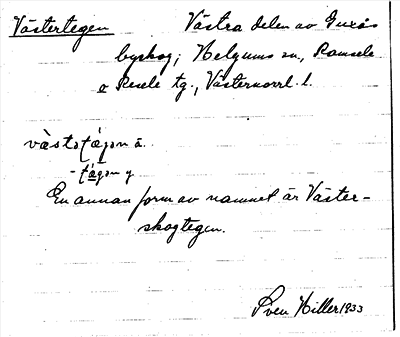 Västertegen Västra delen av Guxås
byskog; Helgums sn., Ramsele
o Resele tg., Västernorrl. l.
vàstətǽgən ä.
- tǽgən y
En annan form av namnet är Väster-
skogtegen.
Sven Hiller 1933